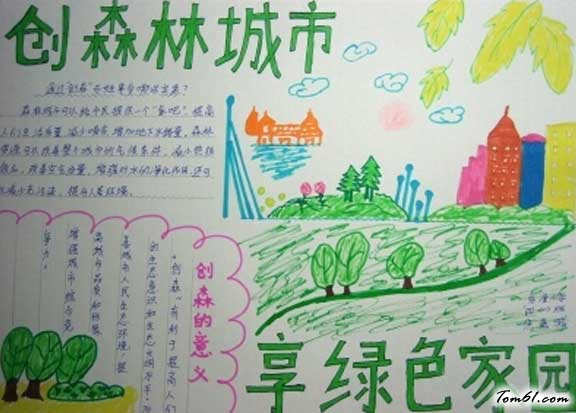 创森林城市
通过"创森"
森林城市可以给市民提供一个"氧吧"，提高
人们生活质量，减小噪音，增加地下水储量，森林
资源可以改善整个城市的气候条件，减小热辐
改善空气质量，增强对水的净化作用，还可
以减小光污染，提升人居环境。
创森的意义
"创森"有利于提高人们
的生态意识和生态文明水平，改
善城市人民生态环境，提
高城市品牌和形象
增强城市综合竞
争力。
享绿色家园
Tom61.com